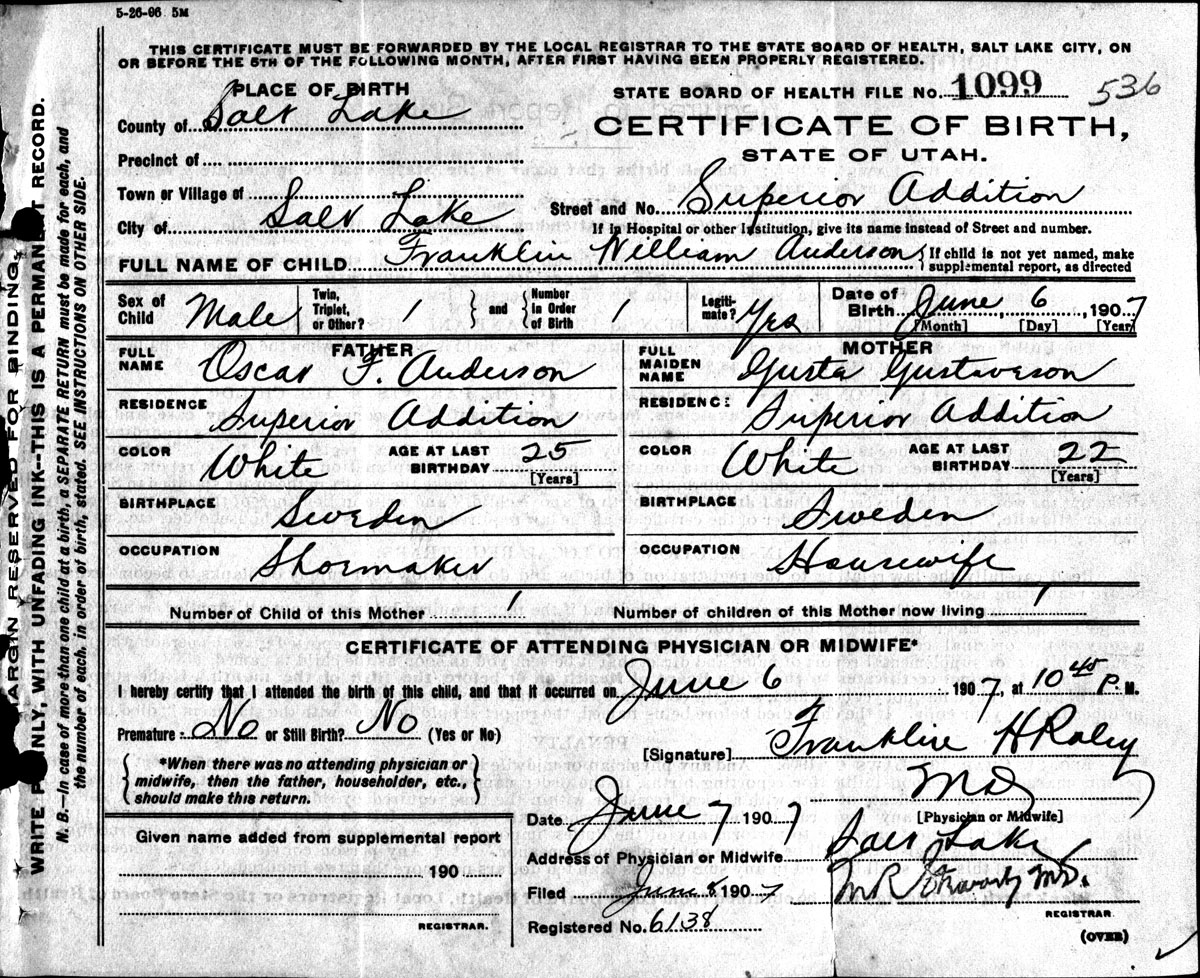 5-26-06 5M
THIS CERTIFICATE MUST BE FORWARDED BY THE LOCAL REGISTRAR TO THE STATE BOARD OF HEALTH, SALT LAKE CITY, ON
OR BEFORE THE 5TH OF THE FOLLOWING MONTH, AFTER FIRST HAVING BEEN PROPERLY REGISTERED.
PLACE OF BIRTH
STATE BOARD OF HEALTH FILE No. 1099 536
County of Salt Lake
CERTIFICATE OF BIRTH,
STATE OF UTAH.
Precinct of
Town or Village of
Street and No. Superior Addition
City of Salt Lake
If in Hospital or other Institution, give its name instead of Street and number.
FULL NAME OF CHILD Franklin William Anderson { If child is not yet named, make
supplemental report, as directed
Sex of Child Male Twin, Triplet, or Other? 1 } and { Number in Order of Birth 1 Legiti-mate? Yes Date of Birth June 6, 1907
[Month] [Day] [Year]
FATHER
MOTHER
FULL NAME Oscar F. Anderson
FULL MAIDEN NAME Gusta Gustaveson
RESIDENCE Superior Addition
RESIDENCE Superior Addition
COLOR White AGE AT LAST BIRTHDAY 25 [Years]
COLOR White AGE AT LAST BIRTHDAY 22 [Years]
BIRTHPLACE Sweden
BIRTHPLACE Sweden
OCCUPATION Shoemaker
OCCUPATION Housewife
Number of Child of this Mother 1 Number of children of this Mother now living 1
CERTIFICATE OF ATTENDING PHYSICIAN OR MIDWIFE*
I hereby certify that I attended the birth of this child, and that it occurred on June 6 1907, at 10 45 P. M.
Premature No or Still Birth? No (Yes or No)
[Signature] Franklin H Raley
MD
[Physician or Midwife]
{ *When there was no attending physician or
midwife, then the father, householder, etc.,
should make this return. }
Date June 7 1907
Given name added from supplemental report
190
REGISTRAR.
Address of Physician or Midwife Salt Lake
Filed June 8 1907 M R MD.
REGISTRAR
Registered No. 6138
(OVER)
MARGIN RESERVED FOR BINDING,
WRITE PLAINLY, WITH UNFADING INK--THIS IS A PERMANENT RECORD.
N. B.--In case of more than one child at a birth, a SEPARATE RETURN must be made for each, and
the number of each, in order of birth, stated. SEE INSTRUCTIONS ON OTHER SIDE.